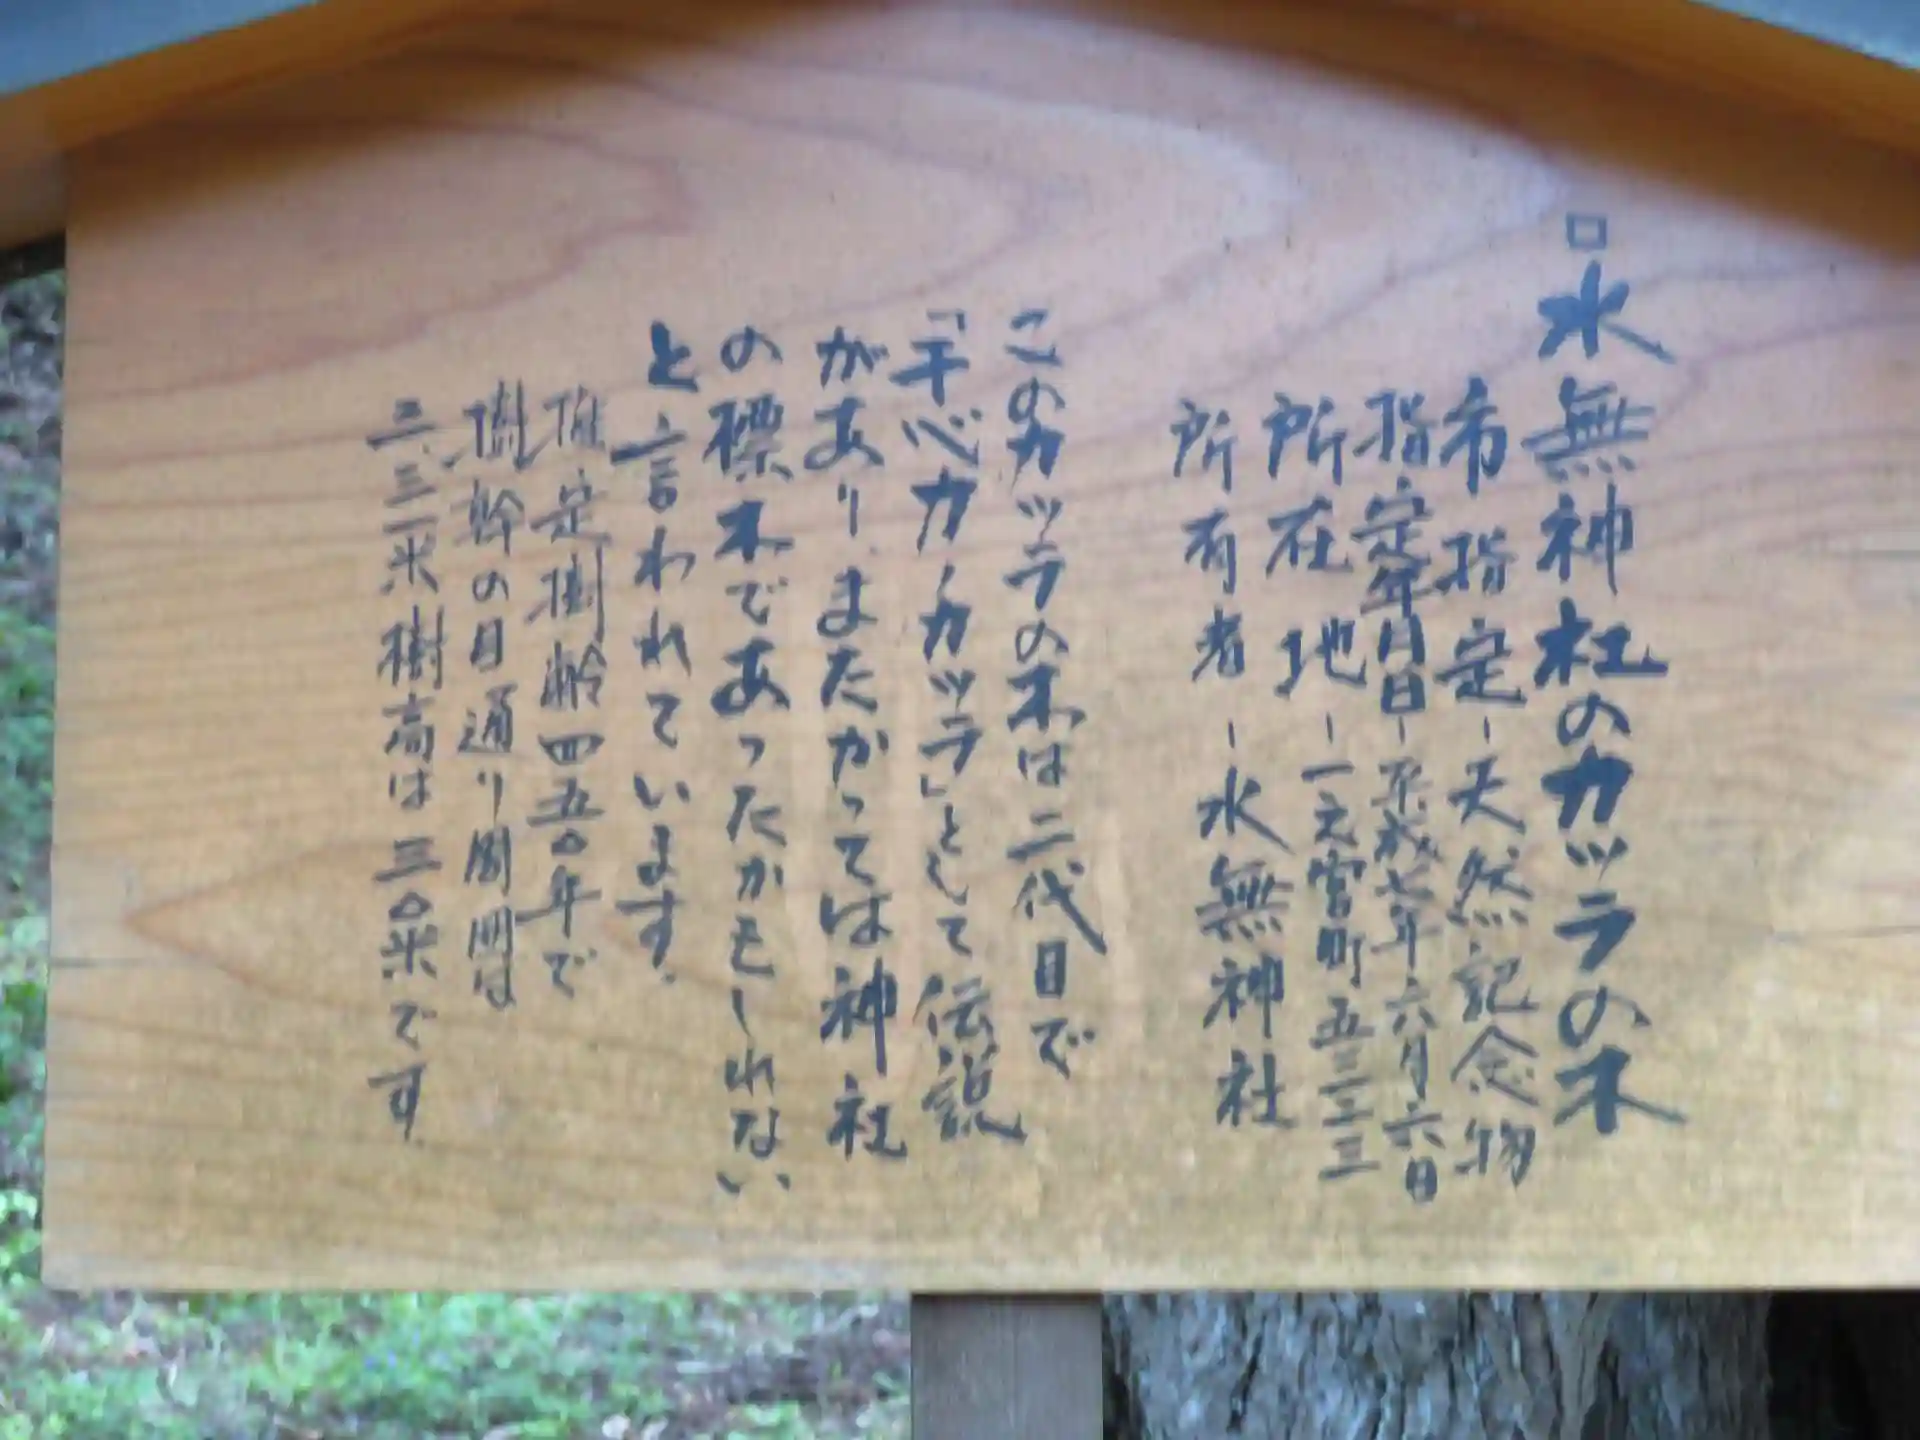 □水無神社のカツラの木
市指定－天然記念物
指定年月日－平成七年六月六日
所在地－一之宮町五三二三
所有者－水無神社
このカツラの木は二代目で
「千心カ／カツラ」として伝説
があり、またかっては神社
の標木であったかもしれない
と言われています。
推定樹齢四五〇年で
樹幹の目通り周囲は
三、三一米樹高は三〇米です。